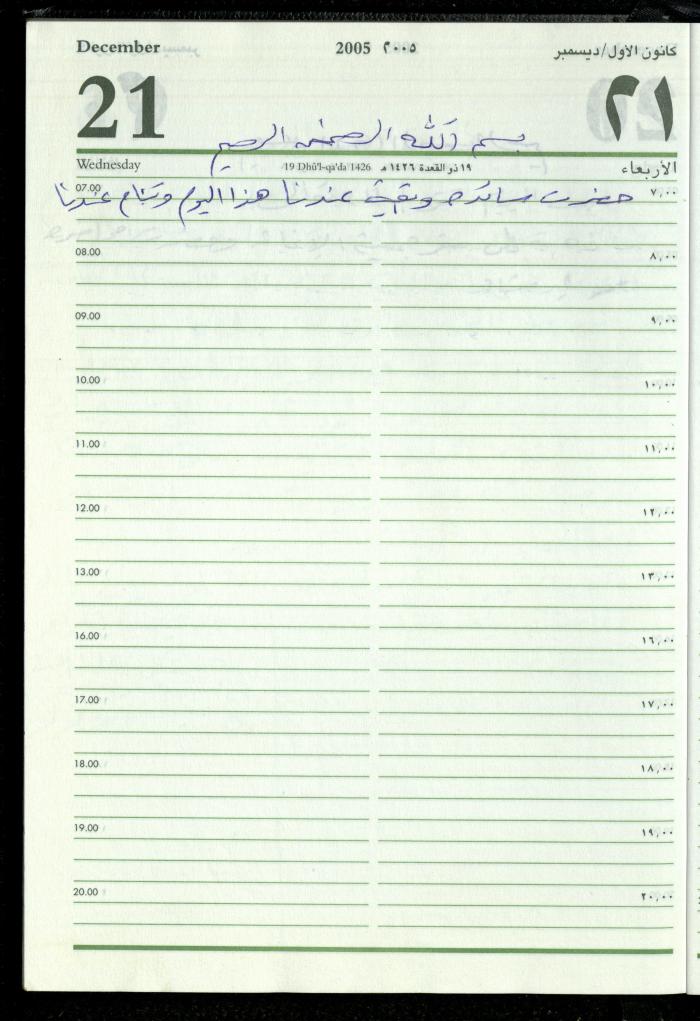 December 2005 ٢٠٠٥ كانون الأول/ديسمبر
21 ٢١
بسم الله الرحمن الرحيم
Wednesday 19 Dhū'l-qa'da 1426 ١٩ ذو القعدة ١٤٢٦ م الأربعاء
07.00 ٧,٠٠
حضرت سائده وبقية عندنا هذا اليوم وتنام عندنا
08.00 ٨,٠٠
09.00 ٩,٠٠
10.00 ١٠,٠٠
11.00 ١١,٠٠
12.00 ١٢,٠٠
13.00 ١٣,٠٠
16.00 ١٦,٠٠
17.00 ١٧,٠٠
18.00 ١٨,٠٠
19.00 ١٩,٠٠
20.00 ٢٠,٠٠